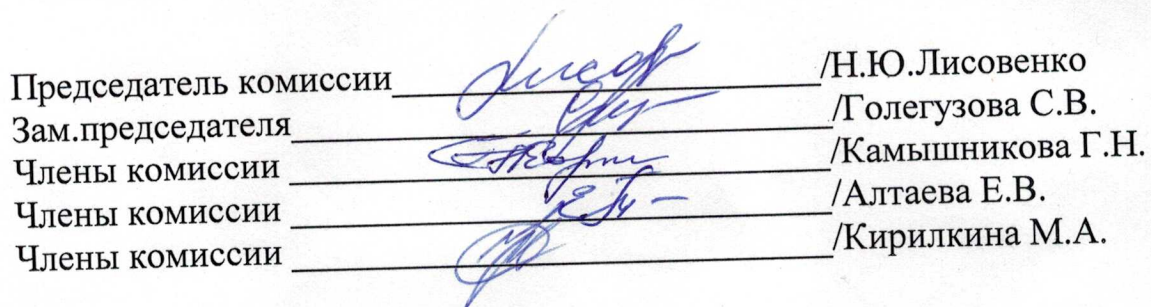 Председатель комиссии /Н.Ю.Лисовенко
Зам.председателя /Голегузова С.В.
Члены комиссии /Камышникова Г.Н.
Члены комиссии /Алтаева Е.В.
Члены комиссии /Кирилкина М.А.